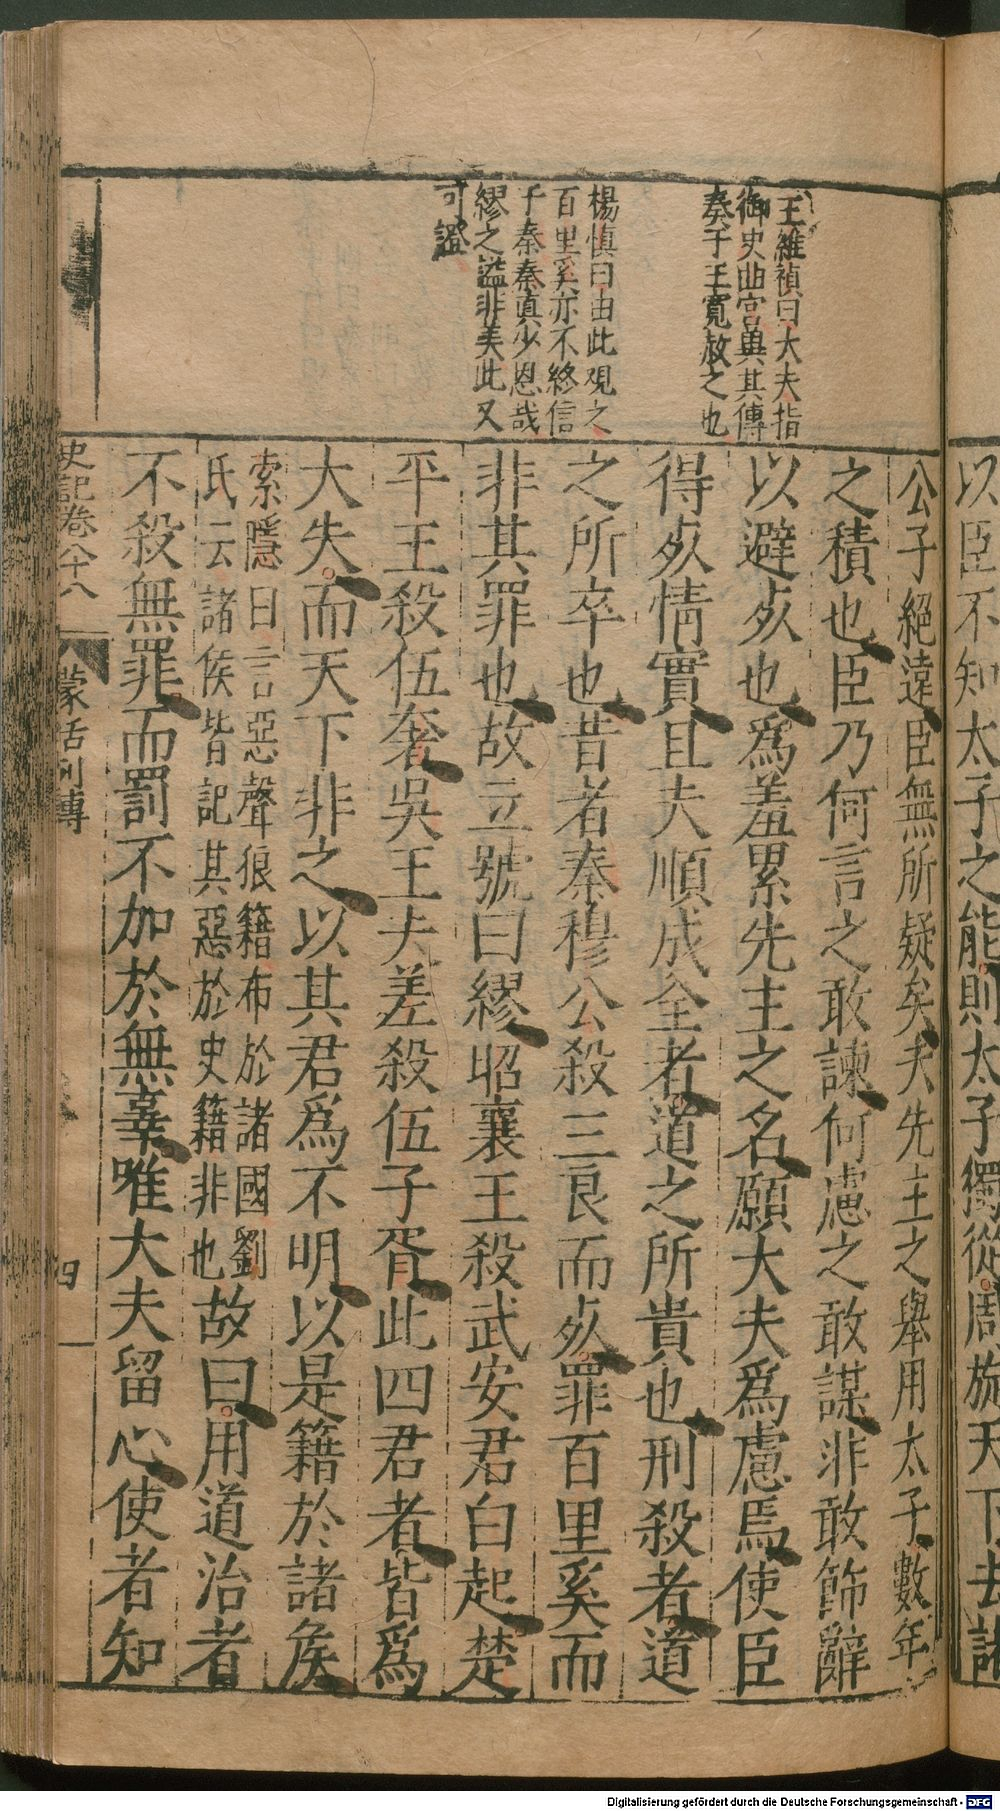 以臣不知太子之能則太子獨從周旋天下去諸
公子絕遠臣無所疑矣夫先主之舉用太子數年
之積也臣乃何言之敢諫何慮之敢謀非敢飾辭
以避死也爲羞累先主之名願大夫爲慮焉使臣
得死情實且夫順成全者道之所貴也刑殺者道
之所卒也昔者秦穆公殺三良而死罪百里奚而
非其罪也故立號曰繆昭襄王殺武安君白起楚
平王殺伍奢吳王夫差殺伍子胥此四君者皆爲
大失而天下非之以其君爲不明以是籍於諸侯
索隱曰言惡聲狼籍布於諸國劉
氏云諸侯皆記其惡於史籍非也
故曰用道治者
不殺無罪而罰不加於無辜唯大夫留心使者知
王維禎曰大夫指
御史曲宮與其傳
奏于王寬赦之也
楊慎曰由此觀之
百里奚亦不終信
于秦秦真少恩哉
繆之謚非美此又
可證
史記卷八十八
蒙恬列傳
四
Digitalisierung gefördert durch die Deutsche Forschungsgemeinschaft - DFG